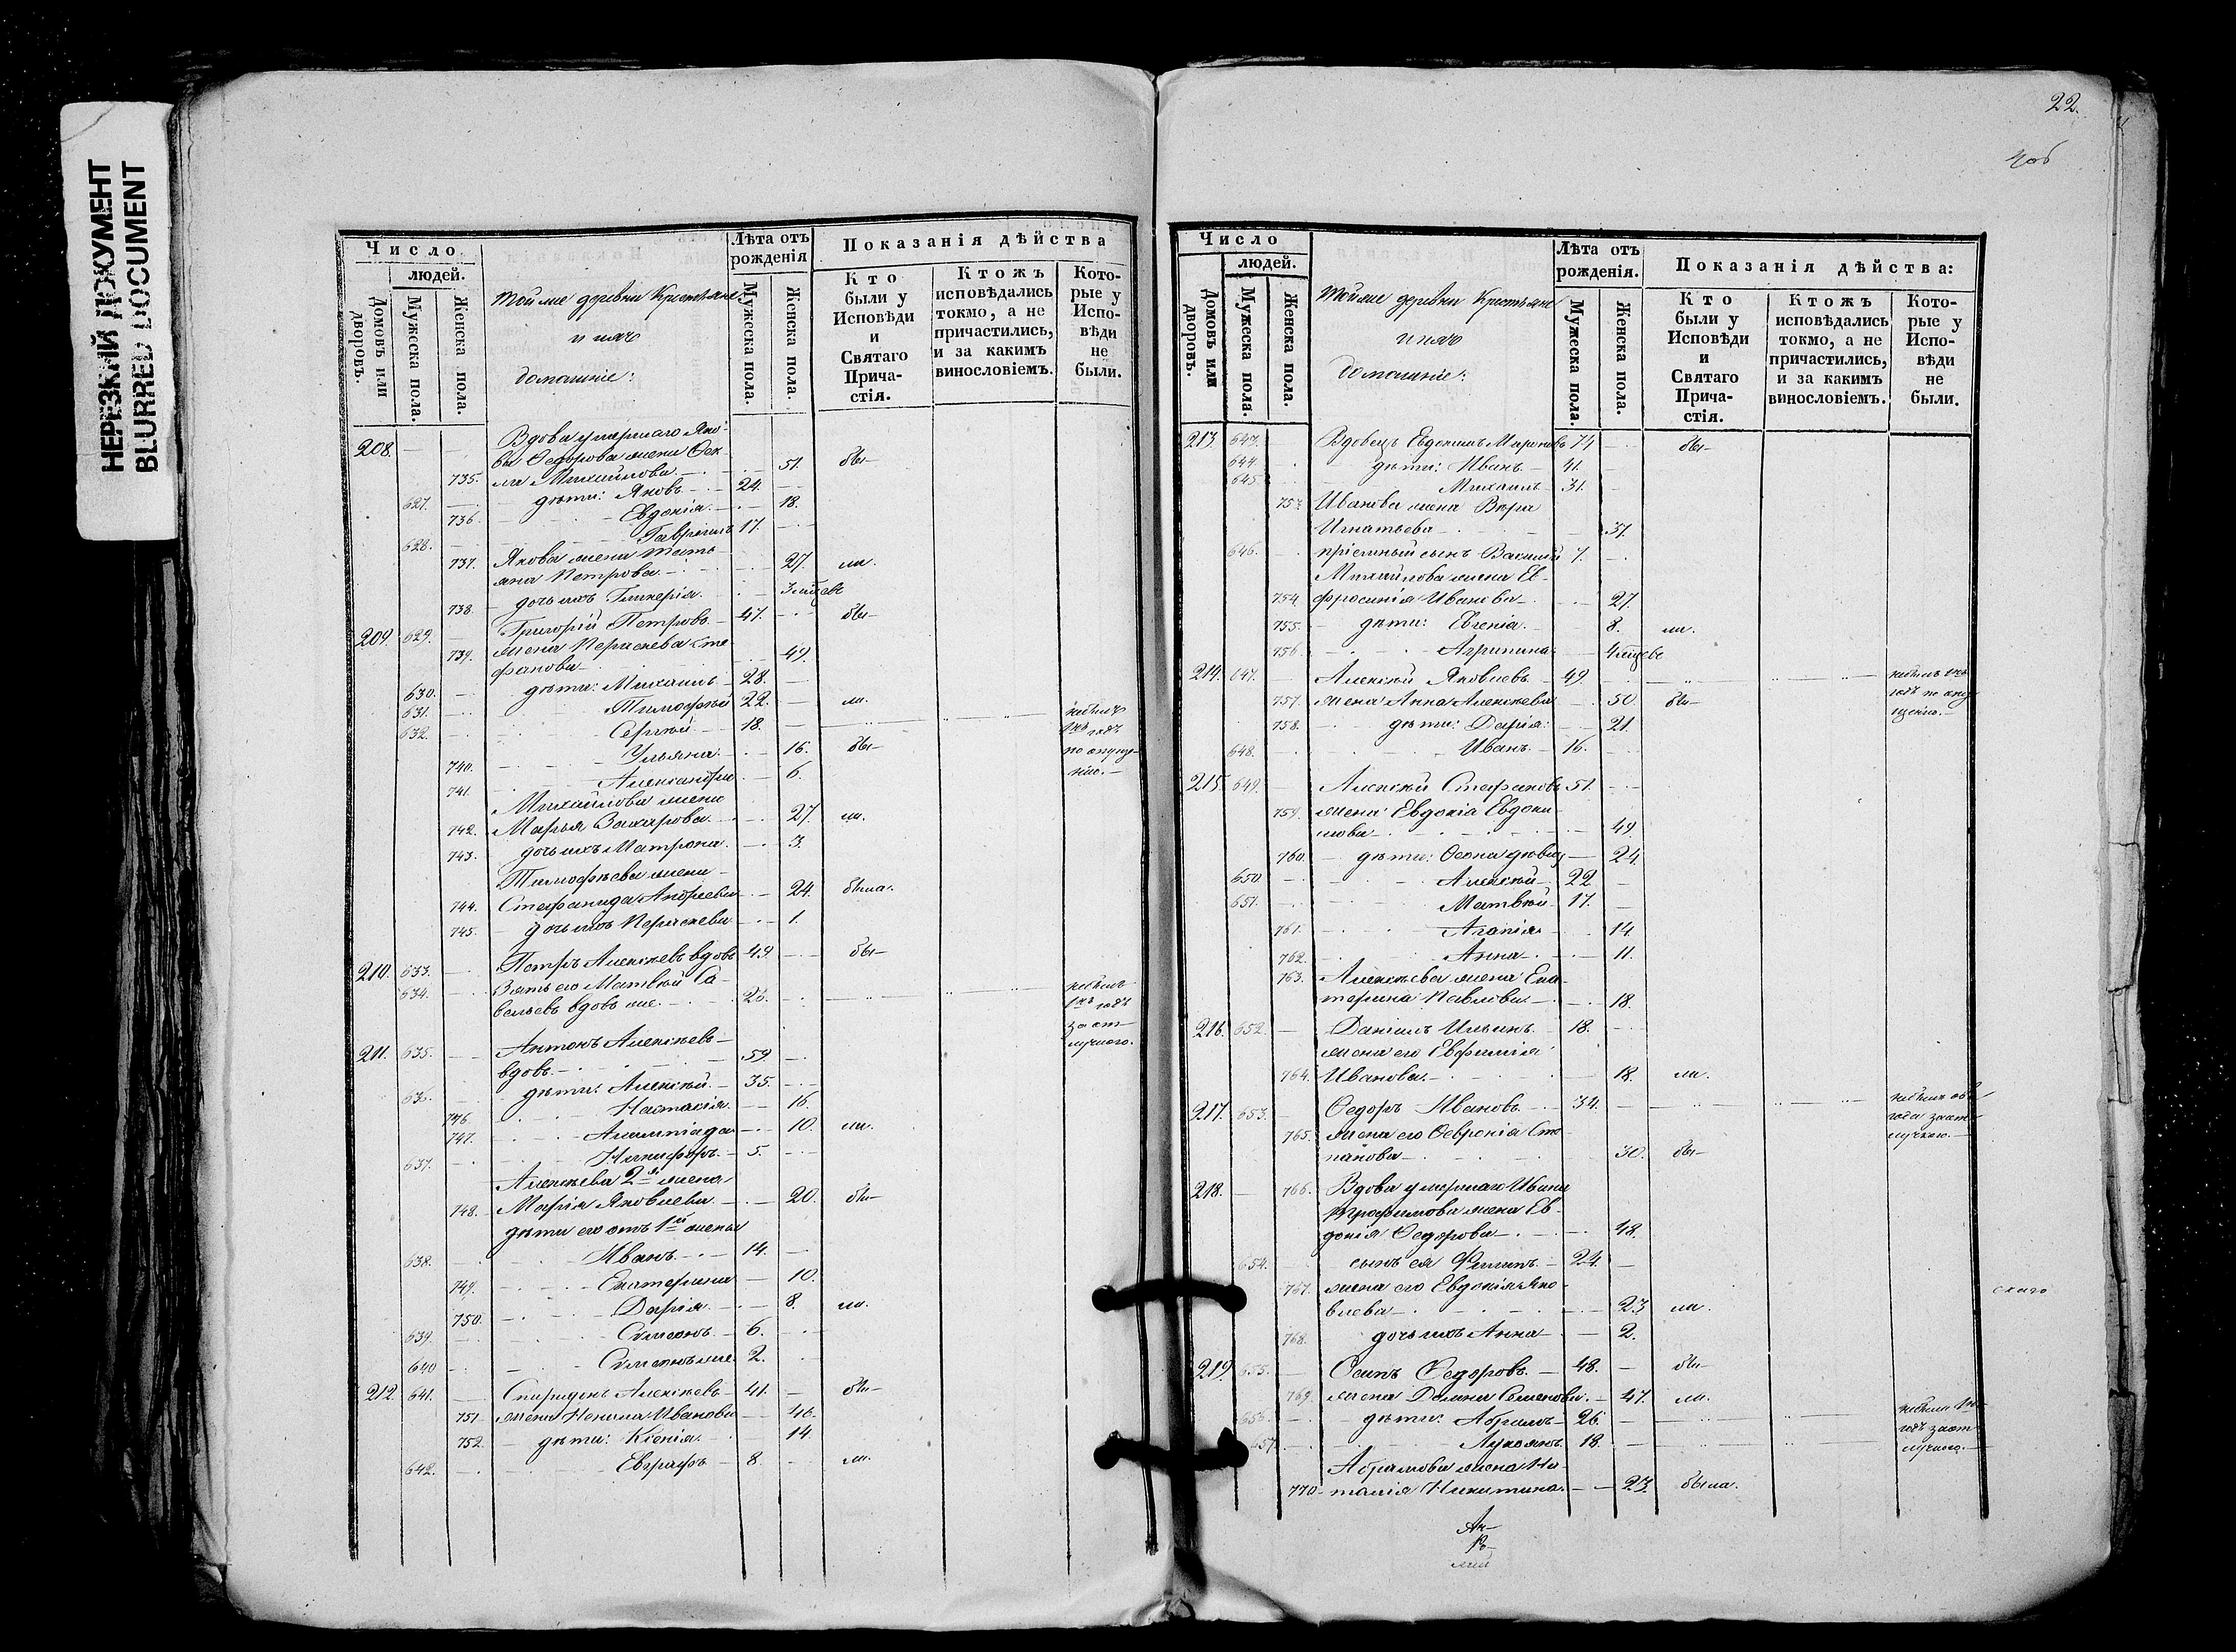 НЕРЕЗКИЙ ДОКУМЕНТ
BLURRED DOCUMENT
Число
людей.
Домовъ или дворовъ.
Мужеска пола.
Женска пола.
Той же деревни Крестьяне
и ихъ
домашніе:
Лѣта отъ рожденія
Мужеска пола.
Женска пола.
Показанія дѣйства
Кто были у Исповѣди и Святаго Причастія.
Ктожъ исповѣдались токмо, а не причастились, и за какимъ винословіемъ.
Которые у Исповѣди не были.
208. Вдова умершаго Яко-
ва Ѳедорова жена Ѳек-
735. ла Михайлова 51. бы-
627. дѣти: Яковъ 24.
736. Евдокія 18.
628. Гавріилъ 17.
Якова жена Татья-
737. яна Петрова 27. ла.
738. дочь ихъ Гликерія 3 мѣсяц
209. 629. Григорій Петровъ 47. бы-
739. жена Параскева Сте-
фанова 49.
630. дѣти: Михаилъ 28.
631. Тимоѳей 22. ли.
632. Сергѣй 18. небылъ 1нъ годъ по опуще-
нію.
740. Ульяна 16. бы-
741. Александра 6.
Михайлова жена
742. Марья Захарова 27. ли.
743. дочь ихъ Матрона 3.
Тимоѳеева жена
744. Стефанида Андреева 24. была.
745. дочь ихъ Параскева 1.
210. 633. Петръ Алексѣевъ вдовъ 49. бы-
634. Зять его Матвѣй Са-
вельевъ вдовъ же 26. небылъ 1нъ годъ за от-
лучкою.
211. 635. Антонъ Алексѣевъ
вдовъ 59.
636. дѣти: Алексѣй 35.
746. Настасія 16.
747. Алимпіада 10. ли.
637. Никифоръ 5.
Алексѣева 2я жена
748. Марія Яковлева 20. бы-
дѣти его отъ 1й жены
638. Иванъ 14.
749. Екатерина 10.
750. Дарія 8. ли.
639. Симеонъ 6.
640. Симеонъ же 2.
212. 641. Спиридонъ Алексѣевъ 41. бы-
751. жена Ненила Иванова 46.
752. дѣти: Ксенія 14.
642. Евграфъ 8. ли.
22.
Число
людей.
Домовъ или дворовъ.
Мужеска пола.
Женска пола.
Той же деревни Крестьяне
и ихъ
домашніе:
Лѣта отъ рожденія.
Мужеска пола.
Женска пола.
Показанія дѣйства:
Кто были у Исповѣди и Святаго Причастія.
Ктожъ исповѣдались токмо, а не причастились, и за какимъ винословіемъ.
Которые у Исповѣди не были.
213. 643. Вдовецъ Евдокимъ Мироновъ 74 бы-
644. дѣти: Иванъ 41.
645. Михаилъ 31.
753. Иванова жена Вѣра
Игнатьева 37.
646. пріемный сынъ Василій 7.
Михайлова жена Ев-
754. фросинія Иванова 27.
755. дѣти: Евгенія 8. ли.
756. Агрипина 4 мѣсяц
214. 647. Алексѣй Яковлевъ 49. небылъ 1нъ годъ по опу-
щенію.
757. жена Анна Алексѣева 50 бы-
758. дѣти: Дарія 21.
648. Иванъ 16.
215. 649. Алексѣй Стефановъ 51.
759. жена Евдокія Евдоки-
мова 49
760. дѣти: Ѳеона дѣвица 24.
650. Алексѣй 22
651. Матвѣй 17.
761. Агапія 14
762. Анна 11.
763. Алексѣева жена Ека-
терина Павлова 18.
216. 652. Даніилъ Ильинъ 18.
жена его Евфимія
764. Иванова 18. ли.
217. 653. Ѳедоръ Ивановъ 34. небылъ два года за от-
лучкою.
765. жена его Ѳевронія Сте-
панова 30. бы-
218. 766. Вдова умершаго Ивана
Трофимова жена Ев-
докія Ѳедорова 48.
654. сынъ ея Филипъ 24.
767. жена его Евдокія Яко-
влева 23 ли.
768. дочь ихъ Анна 2.
219. 655. Осипъ Ѳедоровъ 48. бы-
769. жена Домна Семенова 47. ли.
656. дѣти: Абрамъ 26. небыли 1нъ годъ за от-
лучкою.
657. Лукоянъ 18.
Абрамова жена На-
770. талія Никитина 23. была.
скаго